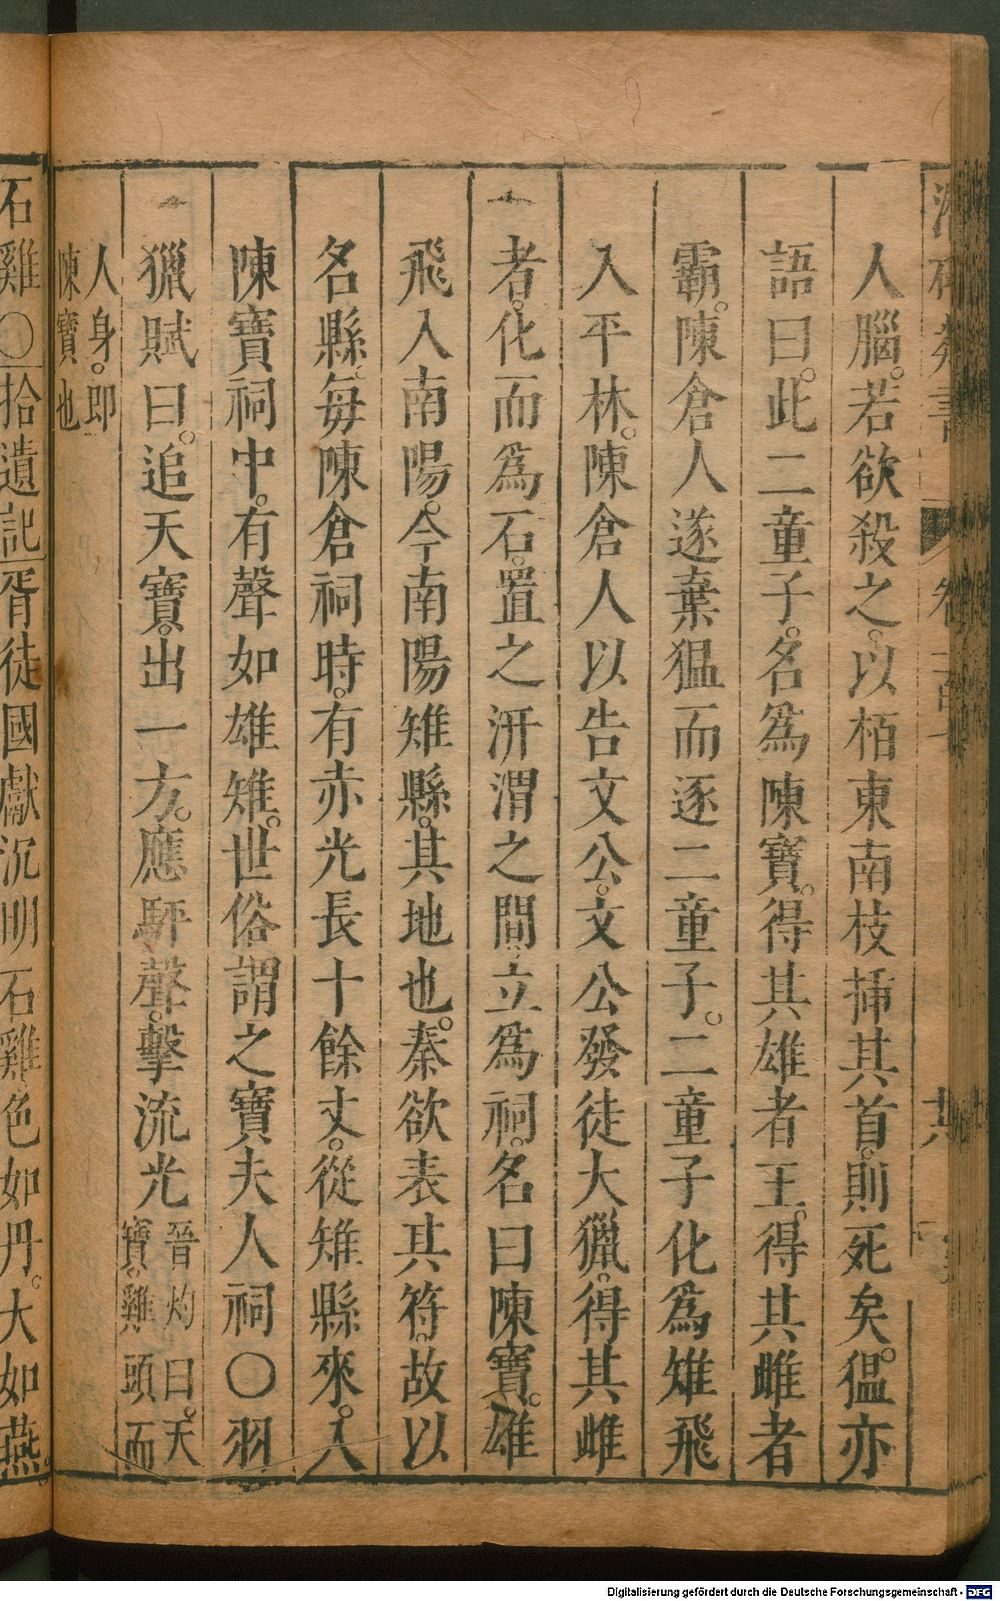 人腦。若欲殺之。以栢東南枝揷其首。則死矣。猽亦
語曰。此二童子。名爲陳寶。得其雄者王。得其雌者
霸。陳倉人遂棄猽而逐二童子。二童子化爲雉飛
入平林。陳倉人以告文公。文公發徒大獵。得其雌
者。化而爲石。置之汧渭之間。立爲祠。名曰陳寶。雄
飛入南陽。今南陽雉縣。其地也。秦欲表其符。故以
名縣。每陳倉祠時。有赤光長十餘丈。從雉縣來。入
陳寶祠中。有聲如雄雉。世俗謂之寶夫人祠○羽
獵賦曰。追天寶。出一方。應駍聲。擊流光
晉灼曰。天
寶。雞頭而
人身。即
陳寶也
石雞○拾遺記胥徒國獻沉明石雞色如丹。大如燕。
Digitalisierung gefördert durch die Deutsche Forschungsgemeinschaft - DFG